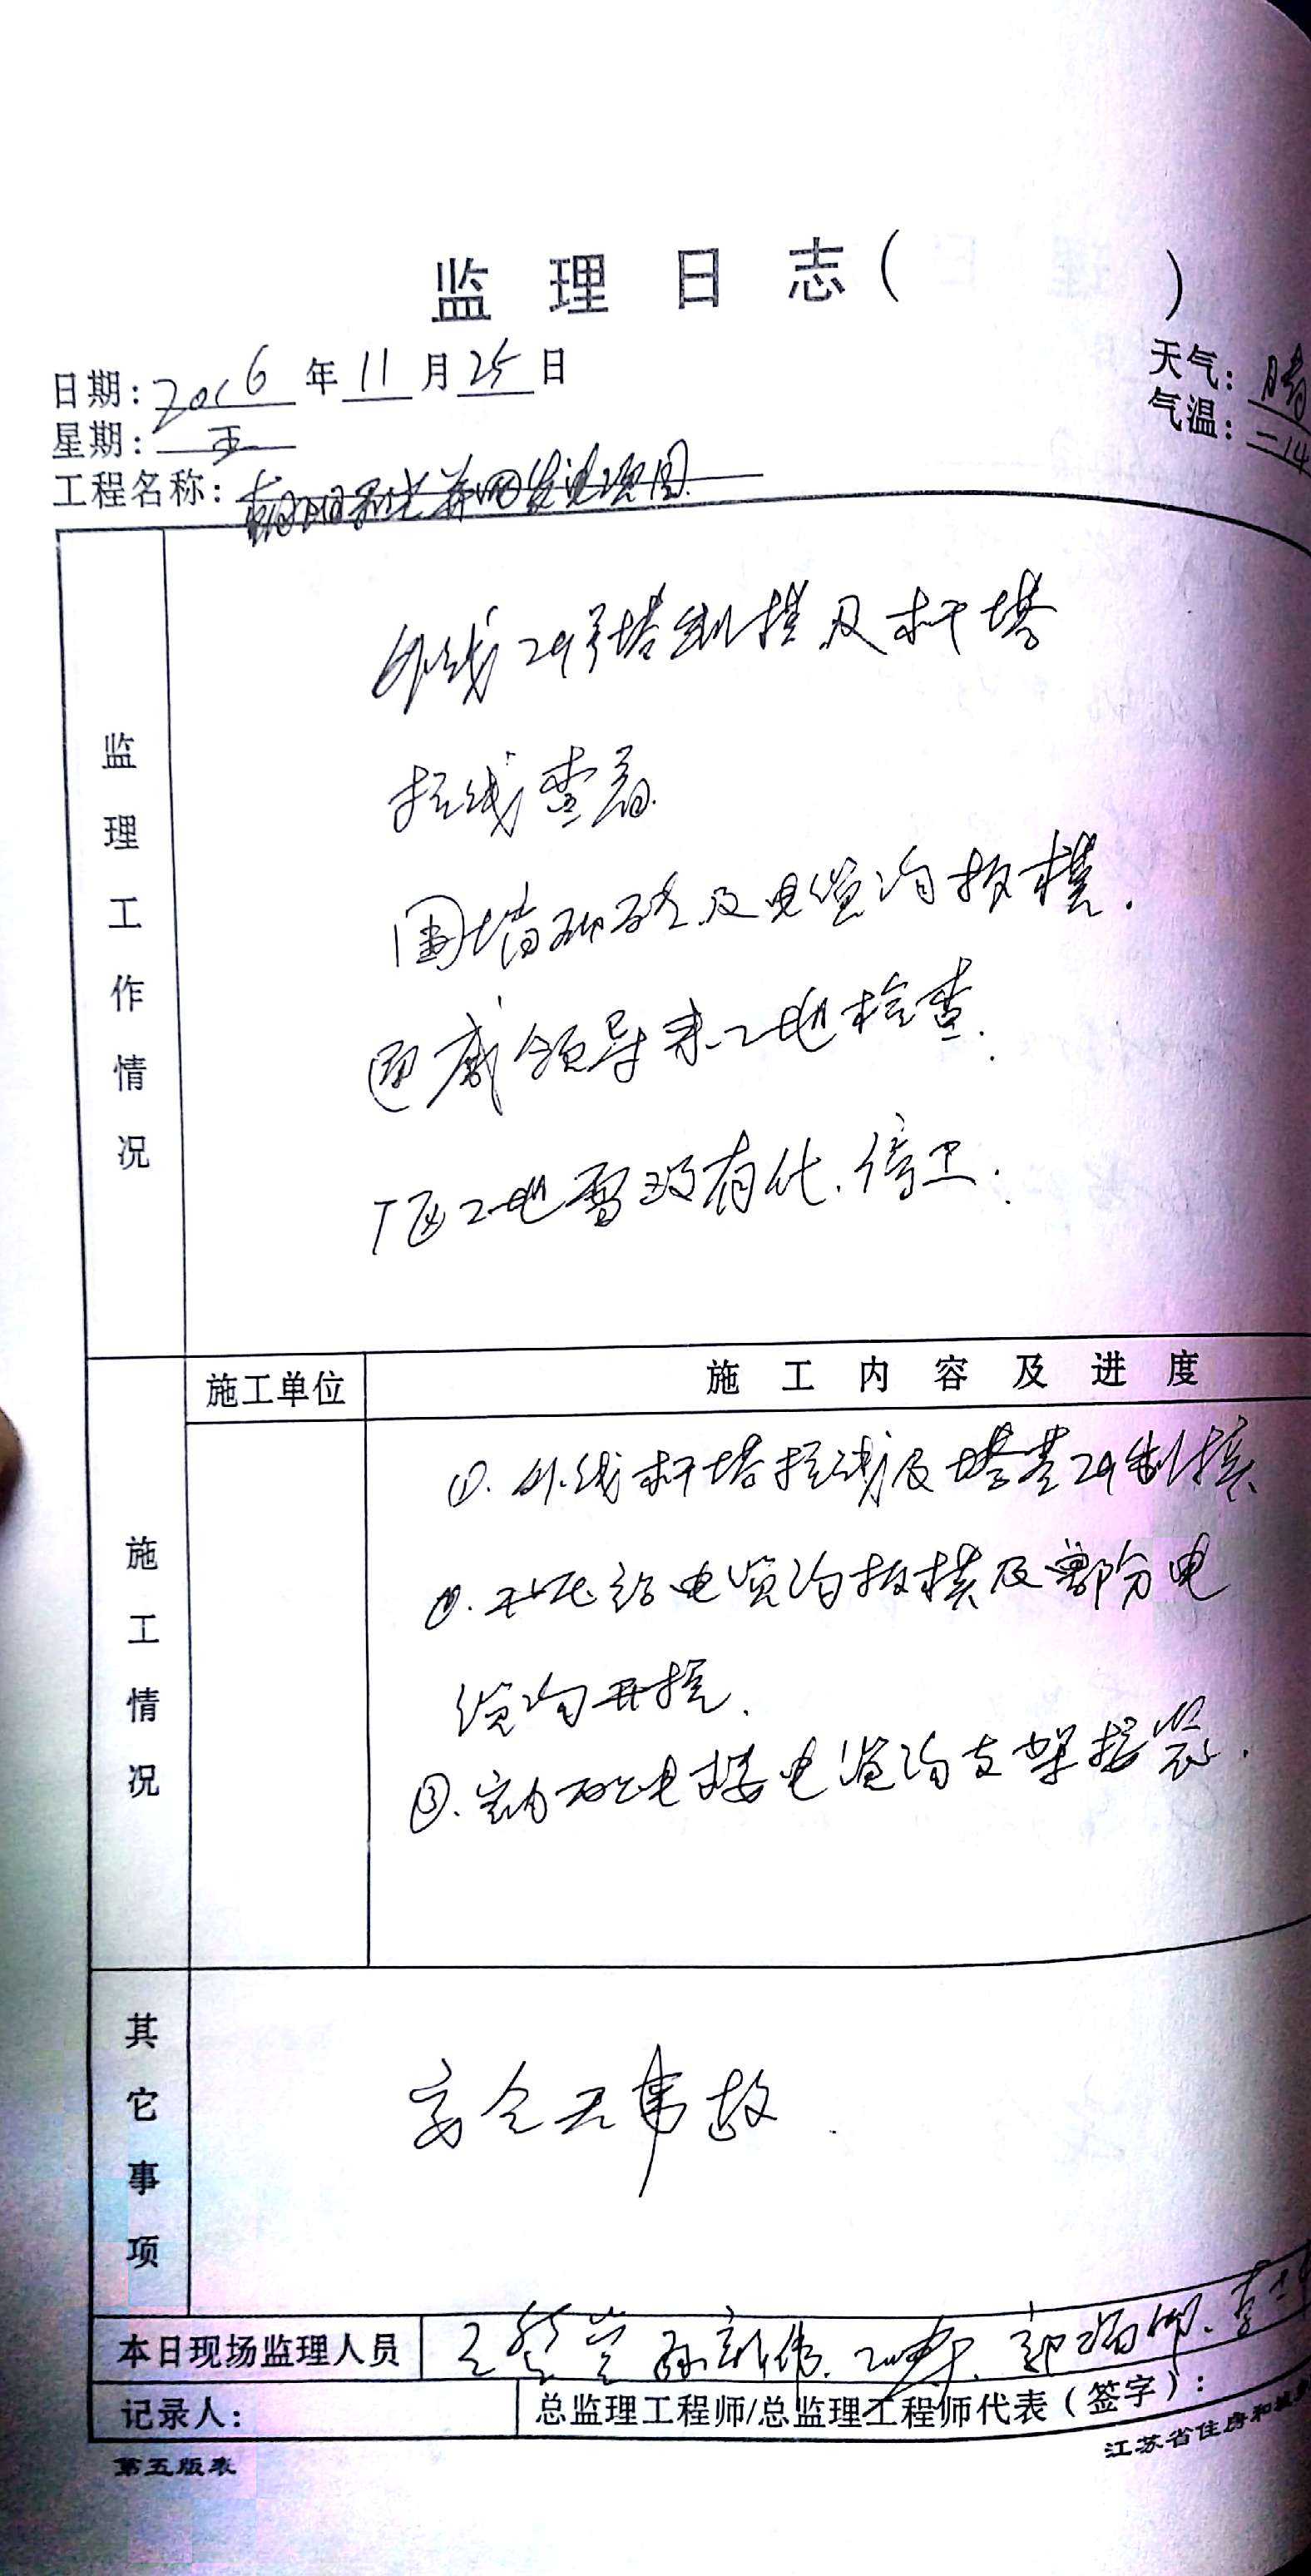 监理日志( )
日期: 2016 年 11 月 25 日
天气: 晴
星期: 五
气温: -14
工程名称:
监理工作情况
外线29号塔制模及杆塔
拉线查看.
围墙砌砖及电缆沟板模.
通威领导来工地检查.
厂区工地雪没有化.停工.
施工单位
施工内容及进度
施工情况
①.外线杆塔拉线及塔基29制模
②. 电缆沟板模及部分电
缆沟开挖.
③.室内 电缆沟支架 装.
其它事项
安全无事故.
本日现场监理人员
记录人:
总监理工程师/总监理工程师代表(签字):
第五版表
江苏省住房和城